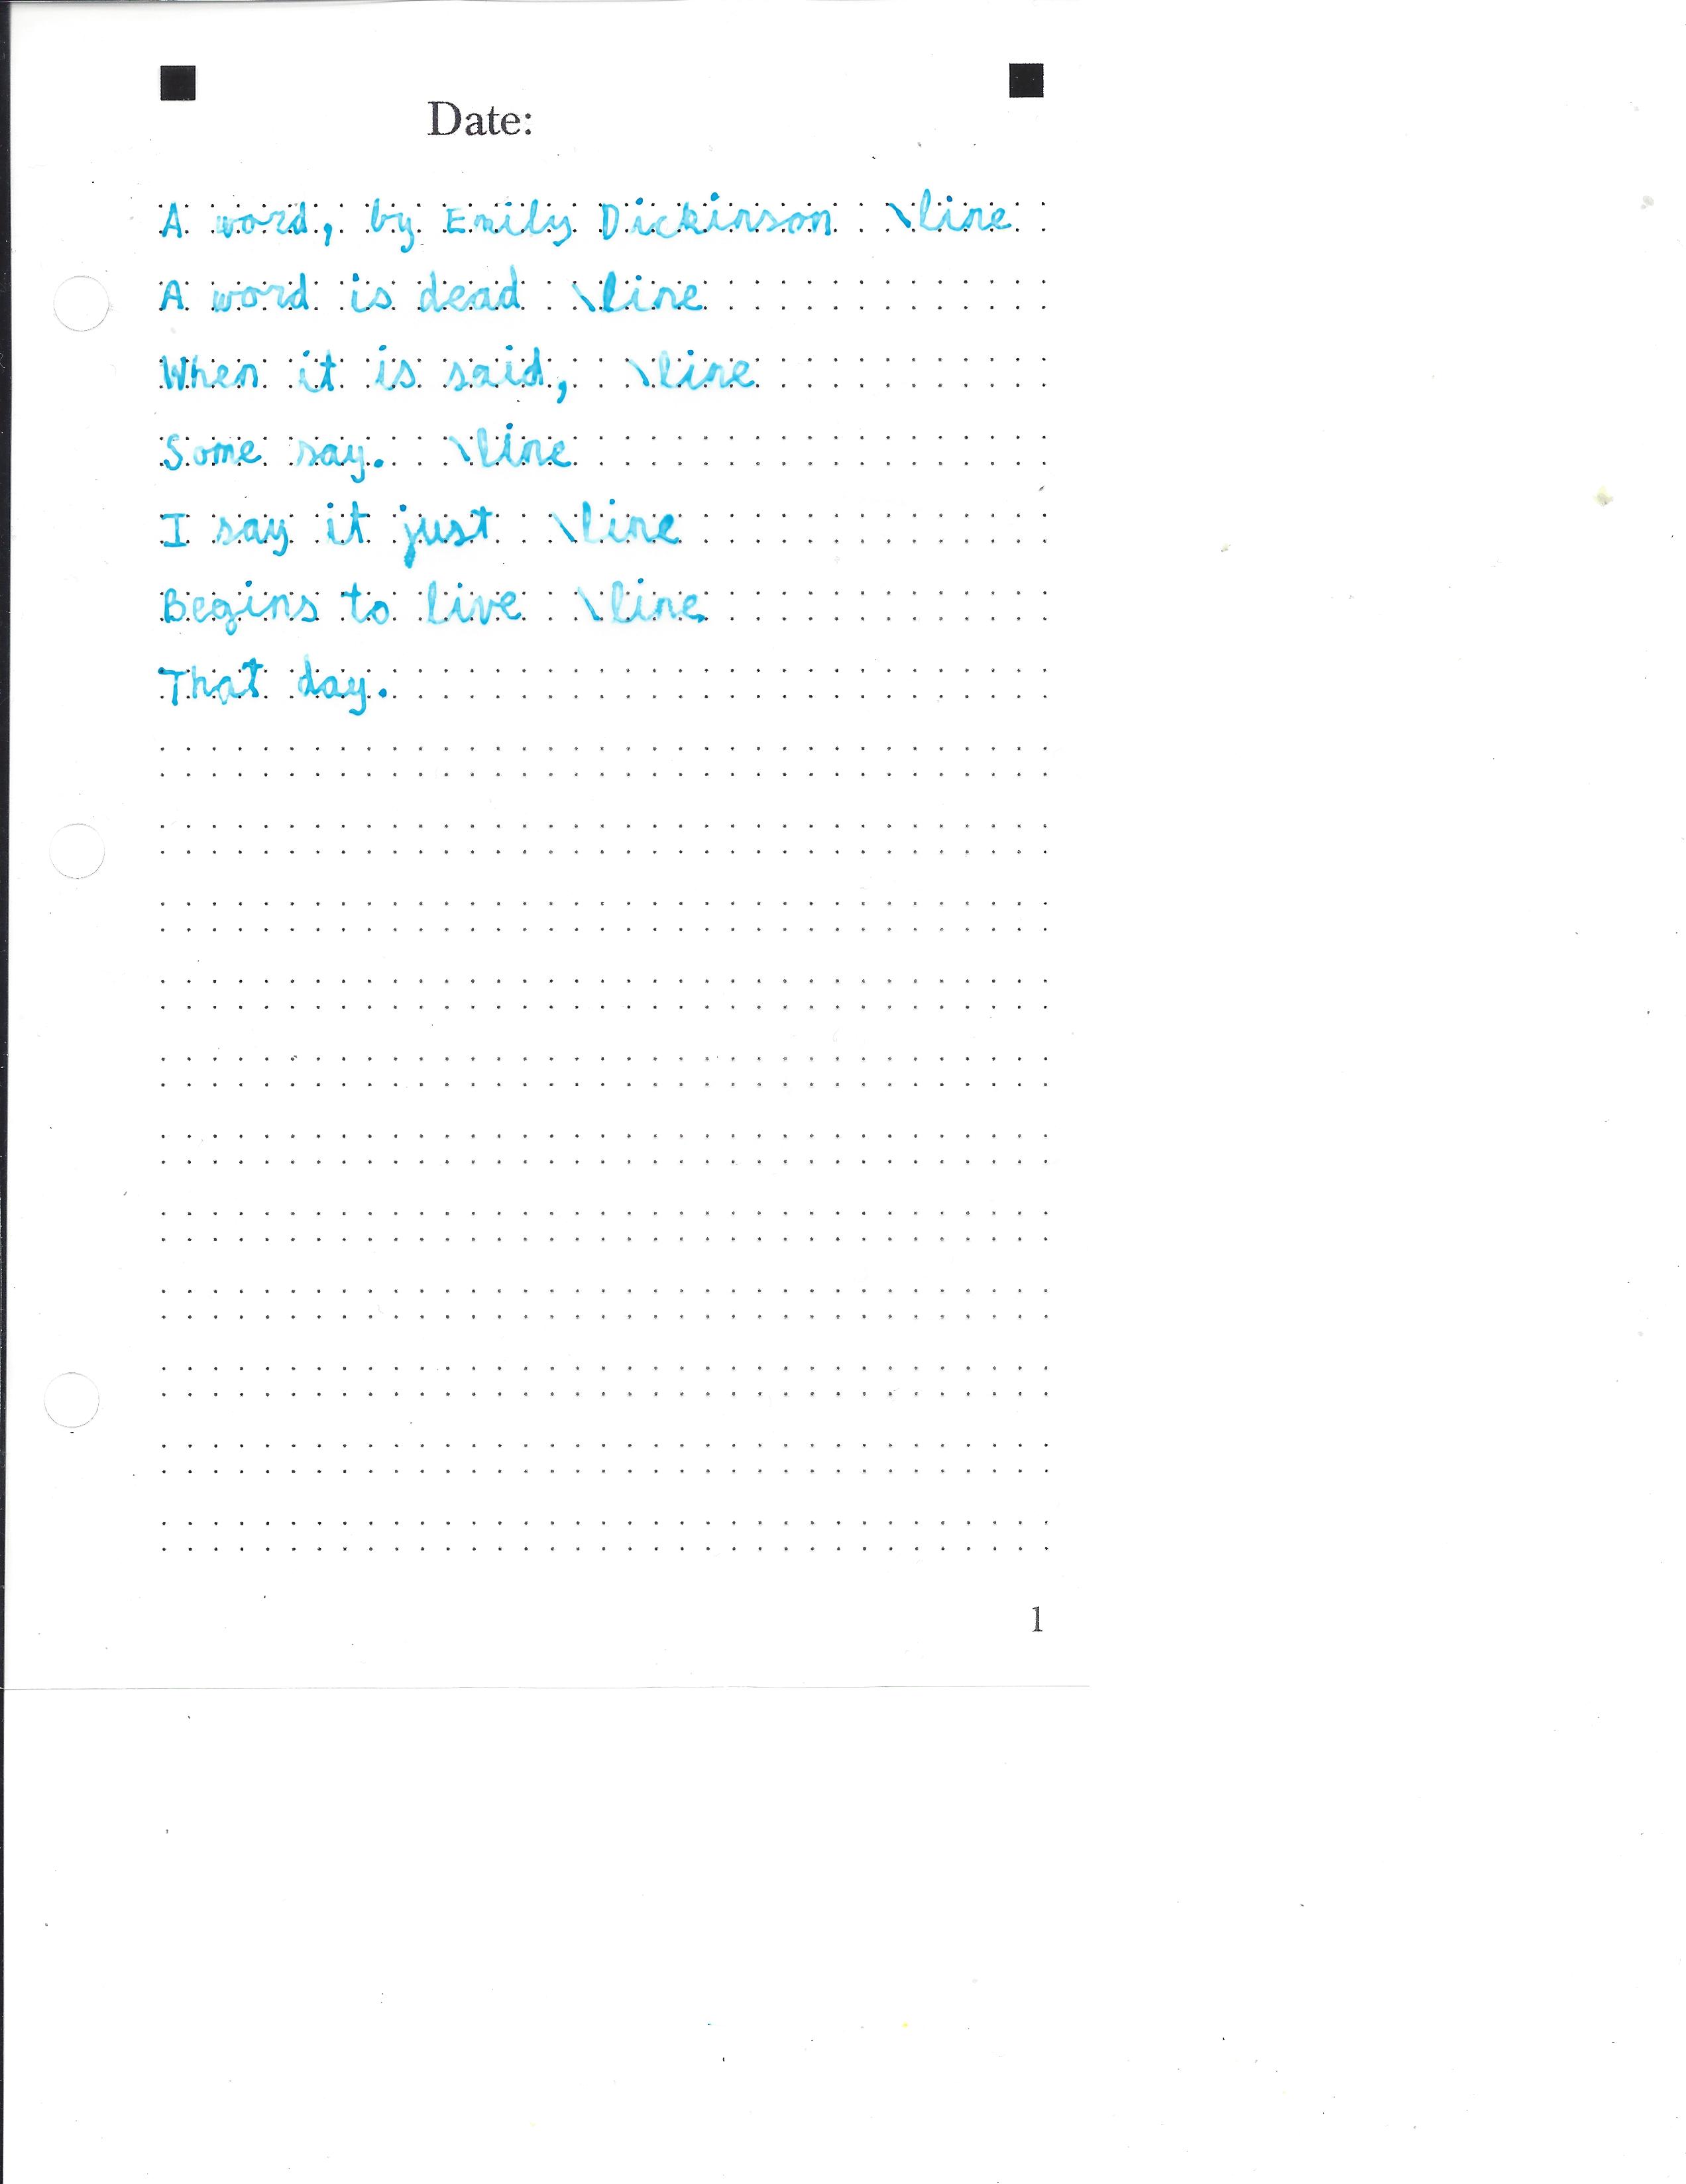 Date:
A word, by Emily Dickinson \line
A word is dead \line
When it is said, \line
Some say. \line
I say it just \line
Begins to live \line
That day.
1